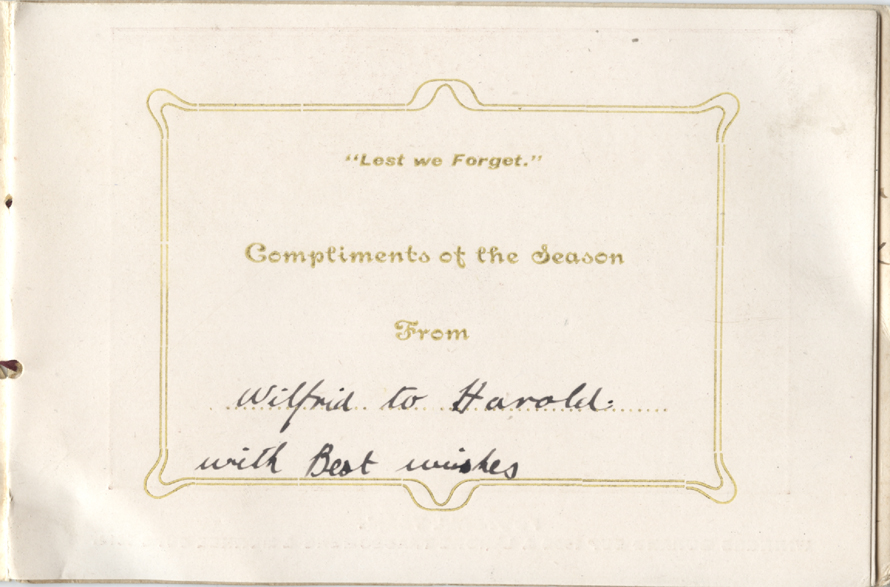 "Lest we Forget."
Compliments of the Season
From
Wilfrid to Harold:
with Best wishes